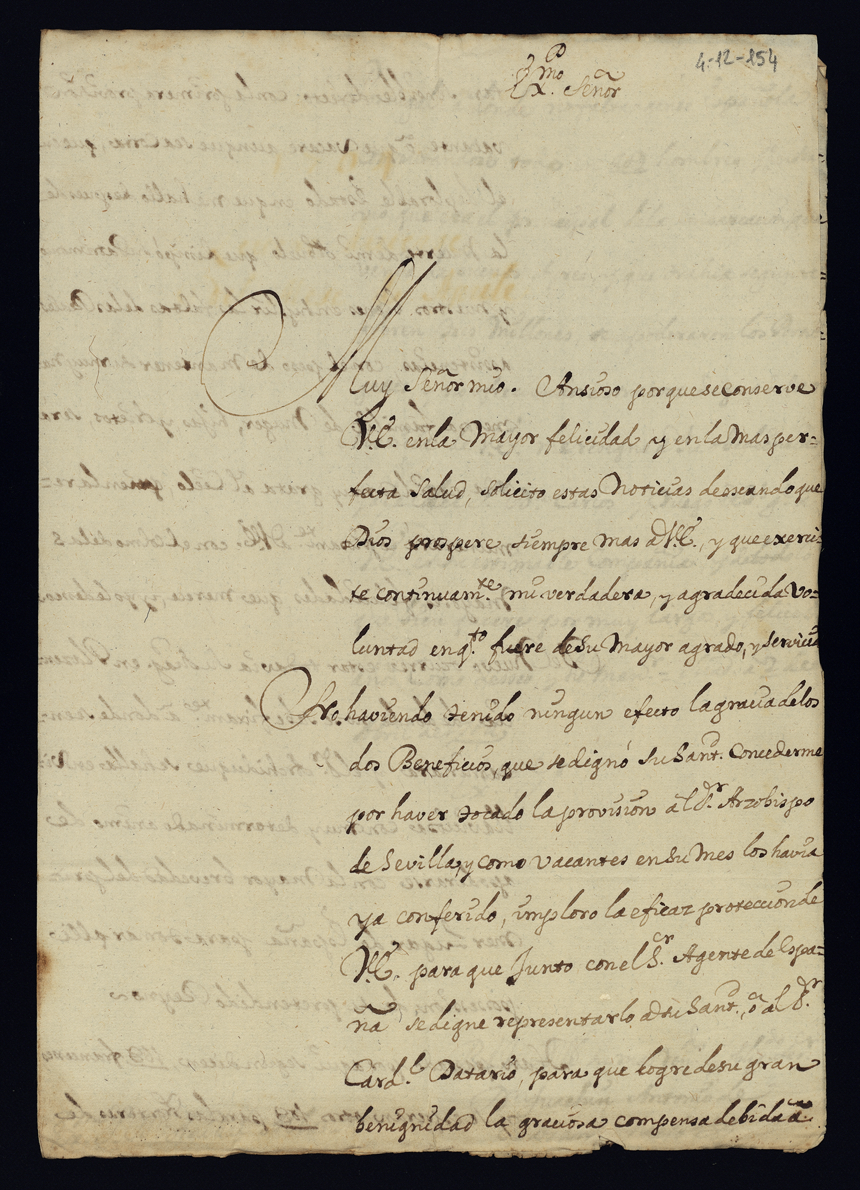 4-12-154
Exmo Señor
Muy Señor mio. Ansioso porque se conserve
V.E. en la Mayor felicidad y en la mas per=
fecta salud, solicito estas Noticias deseando que
Dios prospere siempre mas a V.E., y que exerci=
te continuamte. mi verdadera, y agradecida Vo=
luntad en qto. fuere de su Mayor agrado, y servicio
No haviendo tenido ningun efecto la gracia de los
dos Beneficios, que se dignó su Santd. Concederme
por haver tocado la provision al Sr. Arzobispo
de Sevilla, y como vacantes en su Mes los havia
ya conferido, imploro la eficaz proteccion de
V.E. para que Junto con el Sr. Agente de Espa=
ña se digne representarlo a su Santd., ó al Sr.
Cardl. Datario, para que logre de su gran
benignidad la graciosa compensa debida á